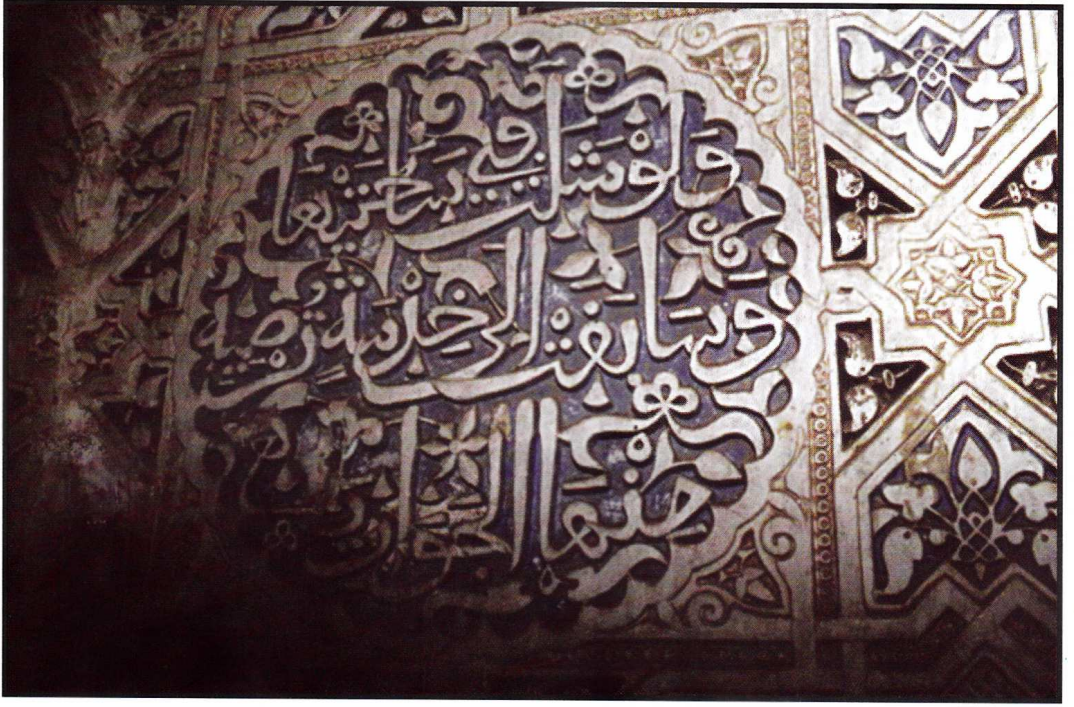 ولو مثلت في ساحتيها
وسابقت الى خدمة ترضيه
منها الجواريا